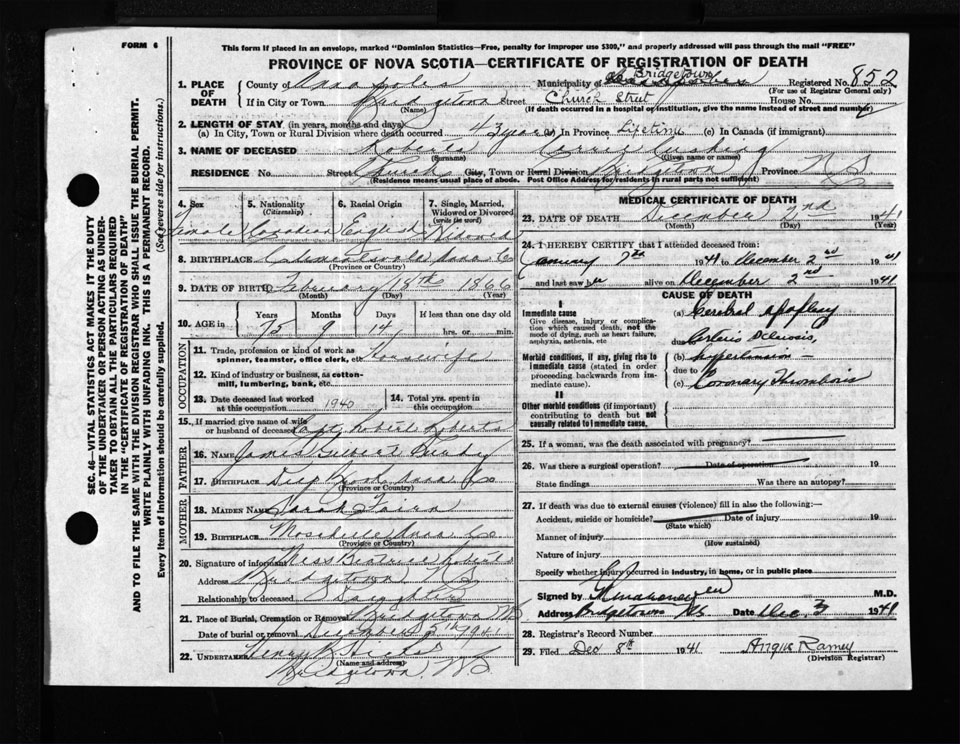 FORM 6
This form if placed in an envelope, marked "Dominion Statistics—Free, penalty for improper use $300," and properly addressed will pass through the mail "FREE"
PROVINCE OF NOVA SCOTIA—CERTIFICATE OF REGISTRATION OF DEATH
1. PLACE OF DEATH County of Annapolis Municipality of Bridgetown Registered No. 852
(For use of Registrar General only)
If in City or Town Bridgetown Street Church Street House No.
(Name) (If death occurred in a hospital or institution, give the name instead of street and number)
2. LENGTH OF STAY (in years, months and days)
(a) In City, Town or Rural Division where death occurred 43 years (b) In Province Lifetime (c) In Canada (if immigrant)
3. NAME OF DECEASED Roberts Carrie Cushing
(Surname) (Given name or names)
RESIDENCE No. Street Church City, Town or Rural Division Bridgetown Province N.S.
(Residence means usual place of abode. Post Office Address for residents in rural parts not sufficient)
4. Sex 5. Nationality (Citizenship) 6. Racial Origin 7. Single, Married, Widowed or Divorced (write the word)
Female Canadian English Widowed
8. BIRTHPLACE Clementsvale Anna Co
(Province or Country)
9. DATE OF BIRTH February 18th 1866
(Month) (Day) (Year)
10. AGE in Years Months Days If less than one day old
75 9 14 hrs. or min.
OCCUPATION
11. Trade, profession or kind of work as spinner, teamster, office clerk, etc. Housewife
12. Kind of industry or business, as cotton-mill, lumbering, bank, etc.
13. Date deceased last worked at this occupation 1940 14. Total yrs. spent in this occupation
15. If married give name of wife or husband of deceased Capt. Robert Roberts
FATHER
16. Name James Gilbert
17. Birthplace Deep Brook Anna Co
(Province or Country)
MOTHER
18. Maiden Name Sarah
19. Birthplace Moschelle Anna Co
(Province or Country)
20. Signature of informant Miss Roberts
Address Bridgetown N.S.
Relationship to deceased Daughter
21. Place of Burial, Cremation or Removal Bridgetown N.S.
Date of burial or removal December 5th 1941
22. Undertaker Henry B Hicks
(Name and address)
Bridgetown N.S.
MEDICAL CERTIFICATE OF DEATH
23. DATE OF DEATH December 2nd 1941
(Month) (Day) (Year)
24. I HEREBY CERTIFY that I attended deceased from:
January 7th 1941 to December 2nd 1941
and last saw her alive on December 2nd 1941
CAUSE OF DEATH
I
Immediate cause
Give disease, injury or complication which caused death, not the mode of dying, such as heart failure, asphyxia, asthenia, etc
(a) Cerebral Apoplexy
due to Arterio Sclerosis,
Morbid conditions, if any, giving rise to immediate cause (stated in order proceeding backwards from immediate cause).
(b) hypertension
due to
(c) Coronary Thrombosis
II
Other morbid conditions (if important) contributing to death but not causally related to immediate cause.
25. If a woman, was the death associated with pregnancy?
26. Was there a surgical operation? Date of operation 19
State findings Was there an autopsy?
27. If death was due to external causes (violence) fill in also the following:—
Accident, suicide or homicide? Date of injury 19
(State which)
Manner of injury
(How sustained)
Nature of injury
Specify whether injury occurred in industry, in home, or in public place
Signed by M.D.
Address Bridgetown NS Date Dec. 3 1941
28. Registrar's Record Number
29. Filed Dec 8th 1941 Angus Ramey
(Division Registrar)
SEC. 46—VITAL STATISTICS ACT MAKES IT THE DUTY
OF THE UNDERTAKER OR PERSON ACTING AS UNDER-
TAKER TO OBTAIN ALL THE PARTICULARS REQUIRED
IN THE "CERTIFICATE OF REGISTRATION OF DEATH"
AND TO FILE THE SAME WITH THE DIVISION REGISTRAR WHO SHALL ISSUE THE BURIAL PERMIT.
WRITE PLAINLY WITH UNFADING INK. THIS IS A PERMANENT RECORD.
Every item of information should be carefully supplied. (See reverse side for instructions.)